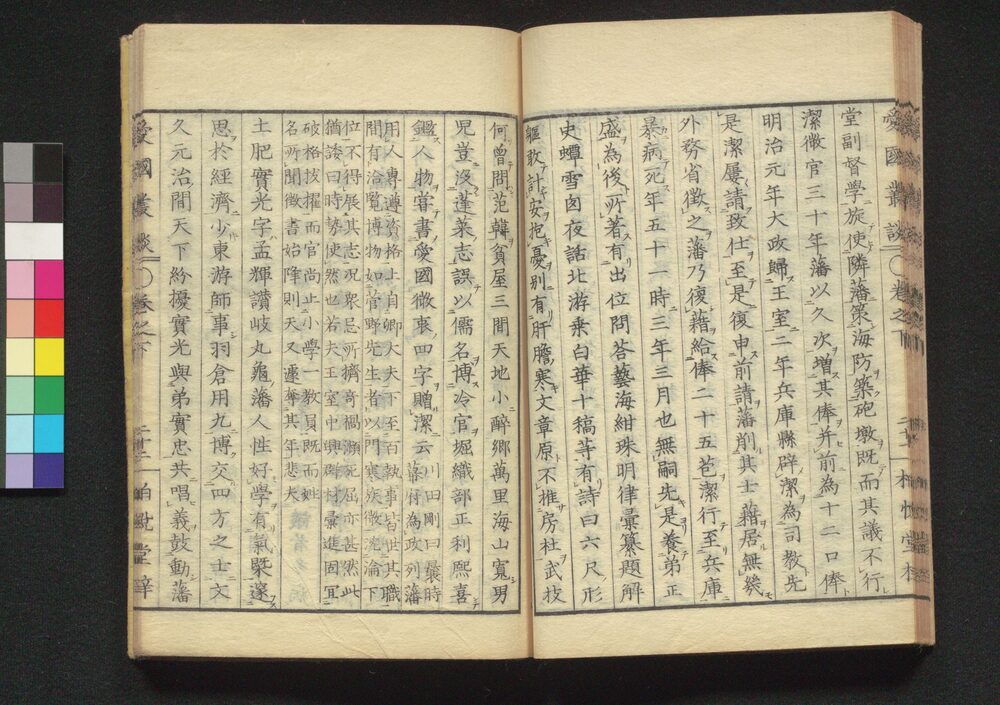 愛國叢談　卷之下
堂副督學旋使隣藩築海防築砲墩既而其議不行
潔徵官三十年藩以久次增其俸并前為十二口俸
明治元年大政歸王室二年兵庫縣辟潔為司教先
是潔屢請致仕至是復申前請藩削其士籍居無幾
外務省徵之藩乃復籍給俸二十五苞潔行至兵庫
暴病死年五十一時三年三月也無嗣先是養弟正
盛為後所著有出位問荅藝海紺珠明律彙纂題解
史蟫雪囱夜話北游乗白華十稿等有詩曰六尺形
軀敢計安抱憂別有肝膽寒文章原不推房杜武技
何曾問范韓貧屋三間天地小醉鄉萬里海山寬男
児豈沒蓬萊志誤以儒名博冷官堀織部正利熙喜
鑑人物嘗書愛國微衷四字贈潔云
川田剛曰曩時
幕府為政列藩
用人專遵資格上自卿大夫下至百執事皆世其職
間有洽覽博物如菅野先生者以門寒族微沈淪下
位不得展其志況衆忌所擠奇禍瀕死屈亦甚然此
猶諉曰時勢使然也若夫王室中興群材彙進固冝
破格拔擢而官尚止小學一教員既而姓
名所聞徵書始降則天又遽奪其年悲夫
土肥實光字孟輝讚岐丸龜藩人性好學有氣槩邃
思於經濟少東游師事羽倉用九博交四方之士文
久元治間天下紛擾實光與弟實忠共唱義鼓動藩
愛國叢談　卷之下　二十二